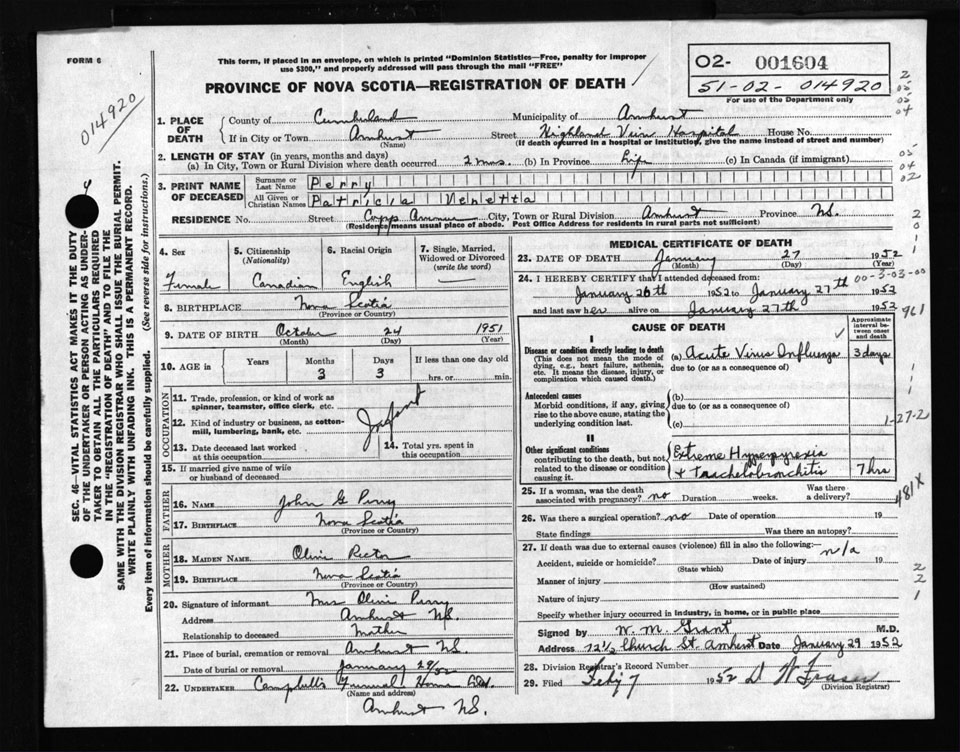 FORM 6
This form, if placed in an envelope, on which is printed "Dominion Statistics—Free, penalty for improper
use $300," and properly addressed will pass through the mail "FREE"
PROVINCE OF NOVA SCOTIA—REGISTRATION OF DEATH
02- 001604
51-02-014920
For use of the Department only
014920
1. PLACE OF DEATH
County of Cumberland Municipality of Amherst
If in City or Town Amherst Street Highland View Hospital House No.
(Name) (If death occurred in a hospital or institution, give the name instead of street and number)
2. LENGTH OF STAY (in years, months and days)
(a) In City, Town or Rural Division where death occurred 2 mos. (b) In Province life (c) In Canada (if immigrant)
3. PRINT NAME OF DECEASED
Surname or Last Name Perry
All Given or Christian Names Patricia Venetta
RESIDENCE No. Street Copps Avenue City, Town or Rural Division Amherst Province N.S.
(Residence means usual place of abode. Post Office Address for residents in rural parts not sufficient)
4. Sex
Female
5. Citizenship
(Nationality)
Canadian
6. Racial Origin
English
7. Single, Married, Widowed or Divorced
(write the word)
8. BIRTHPLACE Nova Scotia
(Province or Country)
9. DATE OF BIRTH October 24 1951
(Month) (Day) (Year)
10. AGE in
Years Months Days If less than one day old
3 3 hrs. or min.
OCCUPATION
11. Trade, profession, or kind of work as
spinner, teamster, office clerk, etc.
12. Kind of industry or business, as cotton-
mill, lumbering, bank, etc.
Infant
13. Date deceased last worked
at this occupation
14. Total yrs. spent in
this occupation
15. If married give name of wife
or husband of deceased
FATHER
16. NAME John G Perry
17. BIRTHPLACE Nova Scotia
(Province or Country)
MOTHER
18. MAIDEN NAME Olive Rector
19. BIRTHPLACE Nova Scotia
(Province or Country)
20. Signature of informant Mrs Olive Perry
Address Amherst N.S.
Relationship to deceased Mother
21. Place of burial, cremation or removal Amherst N.S.
Date of burial or removal January 29/52
22. UNDERTAKER Campbell's Funeral Home Ltd.
(Name and address)
Amherst N.S.
MEDICAL CERTIFICATE OF DEATH
23. DATE OF DEATH January 27 1952
(Month) (Day) (Year)
24. I HEREBY CERTIFY that I attended deceased from:
00-3-03-00
January 26th 1952 to January 27th 1952
and last saw her alive on January 27th 1952
CAUSE OF DEATH
Approximate interval between onset and death
I
Disease or condition directly leading to death
(This does not mean the mode of
dying, e.g., heart failure, asthenia,
etc. It means the disease, injury, or
complication which caused death.)
(a) Acute Virus Influenza 3 days
due to (or as a consequence of)
Antecedent causes
Morbid conditions, if any, giving
rise to the above cause, stating the
underlying condition last.
(b)
due to (or as a consequence of)
(c) 1-27-2
II
Other significant conditions
contributing to the death, but not
related to the disease or condition
causing it.
Extreme Hyperpyrexia
+ Trachelobronchitis 7 hrs
481X
25. If a woman, was the death
associated with pregnancy? no Duration weeks. Was there a delivery?
26. Was there a surgical operation? no Date of operation 19
State findings Was there an autopsy?
27. If death was due to external causes (violence) fill in also the following:— n/a
Accident, suicide or homicide? Date of injury 19
(State which)
Manner of injury
(How sustained)
Nature of injury
Specify whether injury occurred in industry, in home, or in public place
Signed by W. M. Grant M.D.
Address 12½ Church St. Amherst Date January 29 1952
28. Division Registrar's Record Number
29. Filed Feb 7 1952 D N Fraser
(Division Registrar)
SEC. 46—VITAL STATISTICS ACT MAKES IT THE DUTY
OF THE UNDERTAKER OR PERSON ACTING AS UNDER-
TAKER TO OBTAIN ALL THE PARTICULARS REQUIRED
IN THE "REGISTRATION OF DEATH" AND TO FILE THE
SAME WITH THE DIVISION REGISTRAR WHO SHALL ISSUE THE BURIAL PERMIT.
WRITE PLAINLY WITH UNFADING INK. THIS IS A PERMANENT RECORD.
Every item of information should be carefully supplied. (See reverse side for instructions.)